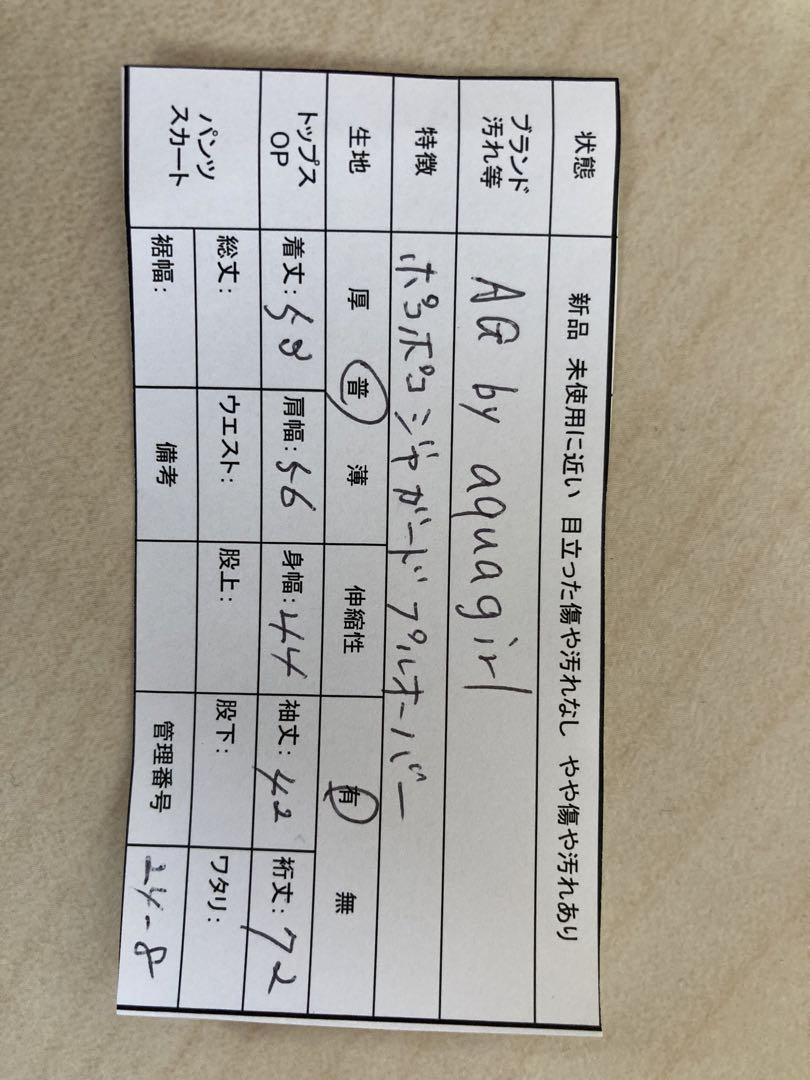 状態 新品 未使用に近い 目立った傷や汚れなし やや傷や汚れあり
ブランド 汚れ等 AG by aquagirl
特徴 ポコポコジャガードプルオーバー
生地 厚 普 薄 伸縮性 有 無
トップス OP 着丈:58 肩幅:56 身幅:44 袖丈:42 裄丈:72
パンツ スカート 総丈: ウエスト: 股上: 股下: ワタリ:
裾幅: 備考 管理番号 24-8